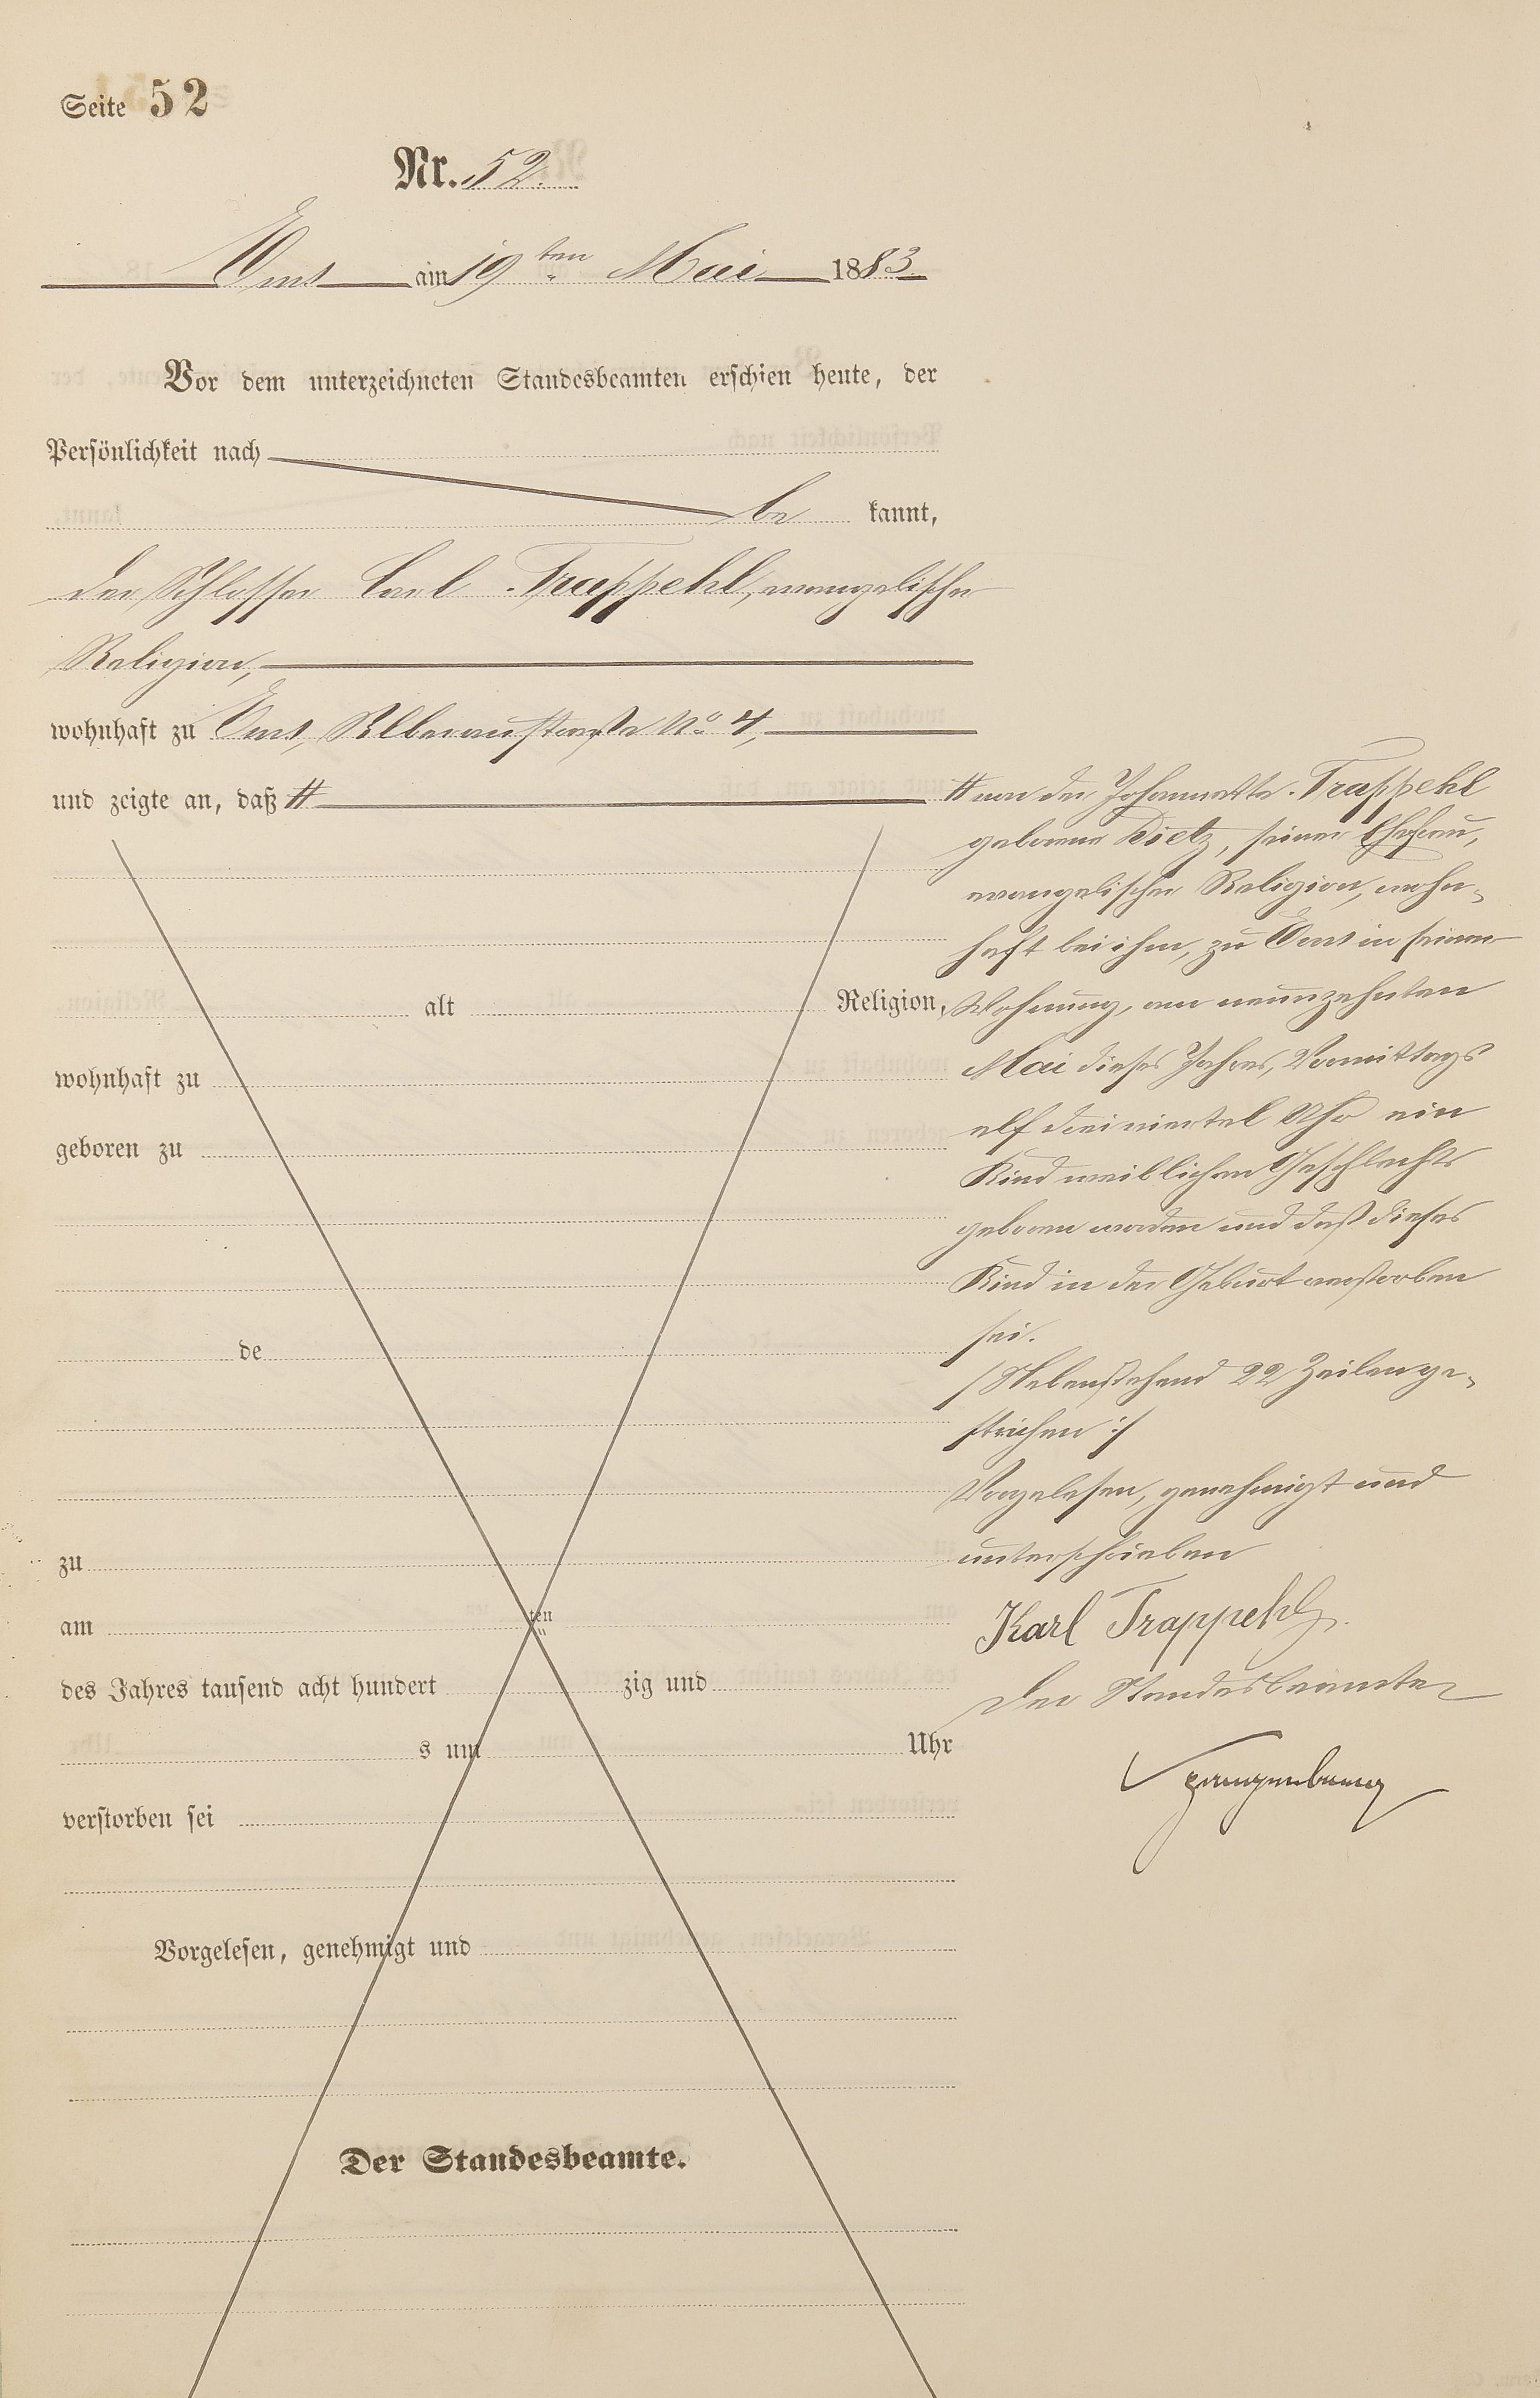 Seite 52
Nr. 52.
Ems am 19ten Mai 1883.
Vor dem unterzeichneten Standesbeamten erschien heute, der
Persönlichkeit nach
be kannt,
der Schlosser Carl Trappehl, evangelischer
Religion,
wohnhaft zu Ems, No. 4,
und zeigte an, daß #
# von der Johannette Trappehl
geborene Dietz, seiner Ehefrau,
evangelischer Religion, wohn-
haft bei ihm, zu Ems in seiner
Wohnung, am neunzehnten
Mai dieses Jahres, Vormittags
elf dreiviertel Uhr ein
Kind weiblichen Geschlechts
geboren worden und daß dieses
Kind in der Geburt verstorben
sei.
/Nebenstehend 22 Zeilen ge-
strichen :/
Vorgelesen, genehmigt und
unterschrieben
Karl Trappehl
Der Standesbeamte
alt Religion,
wohnhaft zu
geboren zu
de
zu
am ten
des Jahres tausend acht hundert zig und
s um Uhr
verstorben sei
Vorgelesen, genehmigt und
Der Standesbeamte.